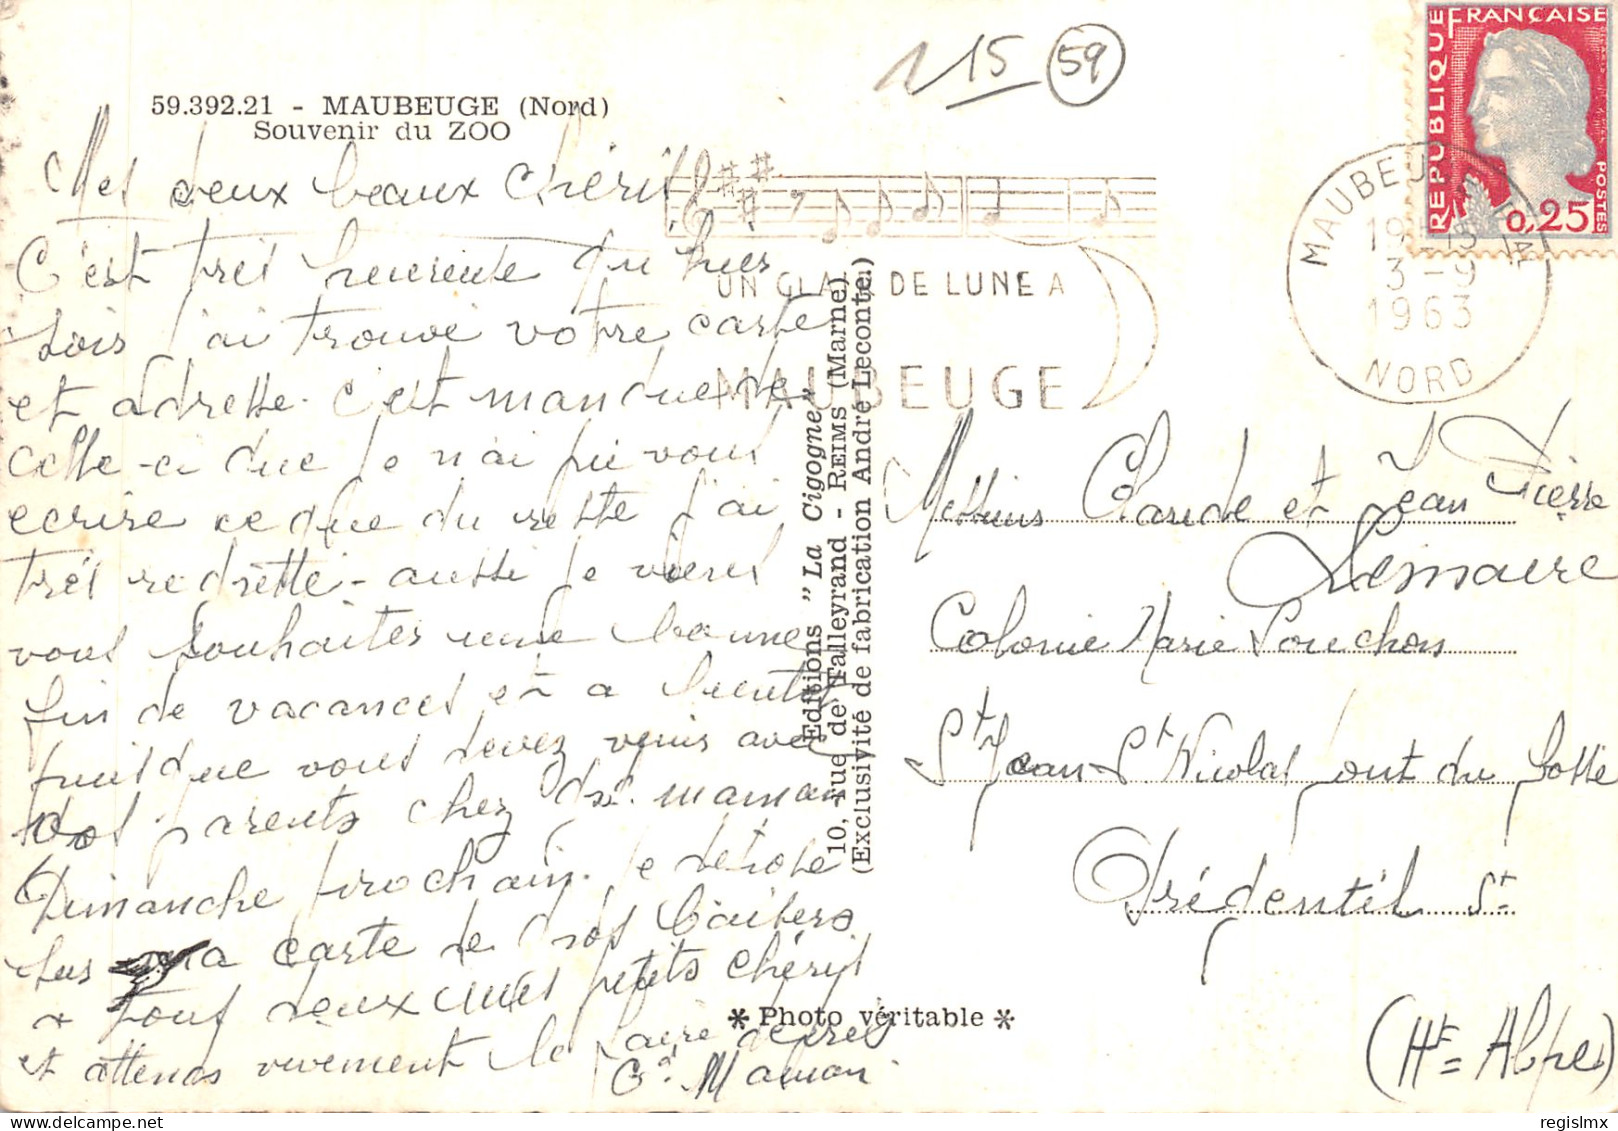 115 59
59.392.21 - MAUBEUGE (Nord)
Souvenir du ZOO
Mes deux beaux chéris
C'est très heureuse qu'hier
soir j'ai trouvé votre carte
et adresse. c'est manque de
celle-ci que je n'ai pu vous
ecrire ce que du reste j'ai
très regrettè - aussi je viens
vous souhaiter une bonne
fin de vacances et a bientot
puisque vous devez venir avec
vos parents chez gd. maman
Dimanche prochain. je dépose
sur ma carte de gros baisers
a tous deux mes petits chéris
et attends vivement le
Gd Maman
Editions "La Cigogne"
10, rue de Talleyrand - REIMS (Marne)
(Exclusivité de fabrication André Leconte.)
* Photo véritable *
UN CLAIR DE LUNE A
MAUBEUGE
MAUBEUGE
19
3-9
1963
NORD
REPUBLIQUE FRANÇAISE
POSTES
0,25
Messieurs Claude et Jean Pierre
Lemaire
Colonie Marie Souchon
St Jean St Nicolas pont du fossé
Prégentil St
(Hte Alpes)
regislmx